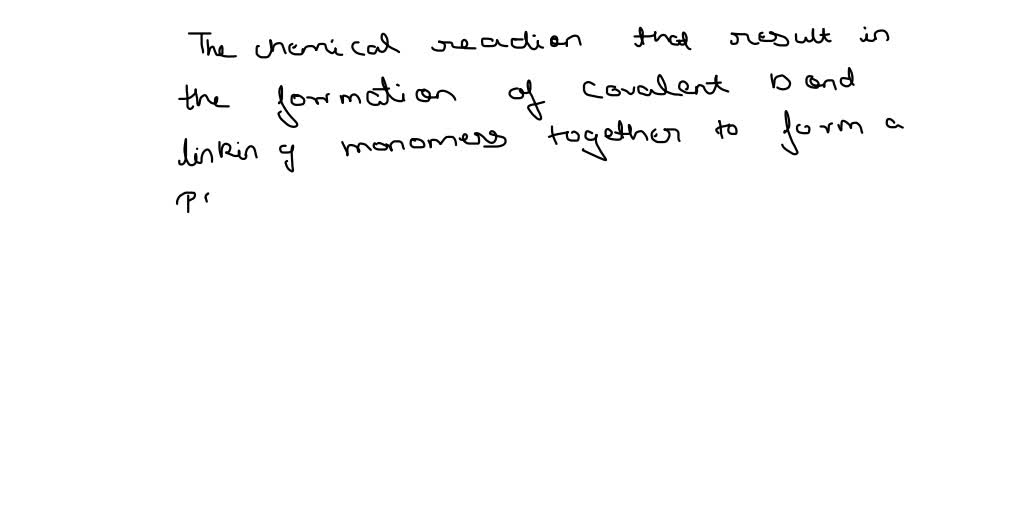 The chemical reaction that result in
the formation of covalent bond
linking monomers together to form a